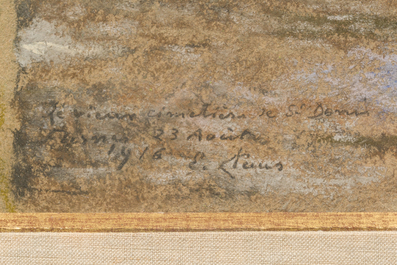 Le vieux cimetière de St Denis
23 Août
1916 E. Claus